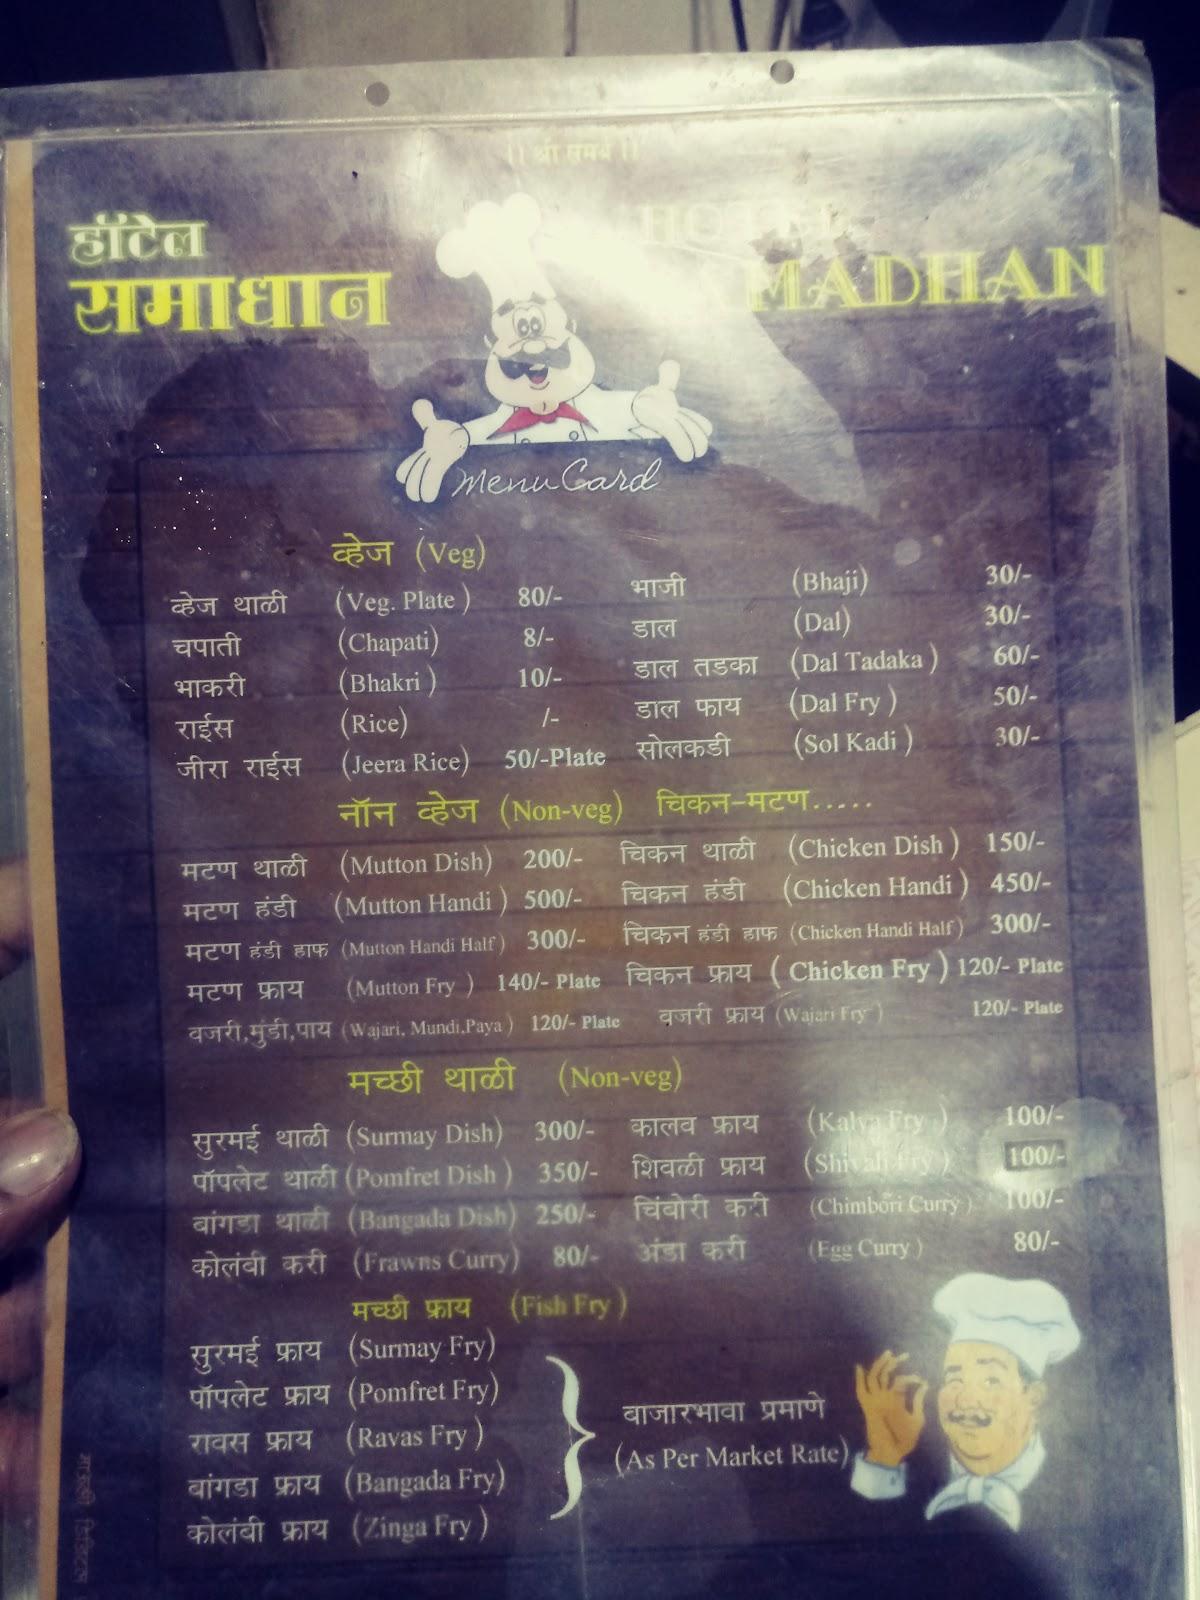 ।। श्री समर्थ ।।
हॉटेल
समाधान
HOTEL
MADHAN
Menu Card
व्हेज (Veg)
व्हेज थाळी (Veg. Plate ) 80/- भाजी (Bhaji) 30/-
चपाती (Chapati) 8/- डाल (Dal) 30/-
भाकरी (Bhakri ) 10/- डाल तडका (Dal Tadaka ) 60/-
राईस (Rice) /- डाल फाय (Dal Fry ) 50/-
जीरा राईस (Jeera Rice) 50/-Plate सोलकडी (Sol Kadi ) 30/-
नॉन व्हेज (Non-veg) चिकन-मटण.....
मटण थाळी (Mutton Dish) 200/- चिकन थाळी (Chicken Dish ) 150/-
मटण हंडी (Mutton Handi ) 500/- चिकन हंडी (Chicken Handi ) 450/-
मटण हंडी हाफ (Mutton Handi Half ) 300/- चिकन हंडी हाफ (Chicken Handi Half ) 300/-
मटण फ्राय (Mutton Fry ) 140/- Plate चिकन फ्राय ( Chicken Fry ) 120/- Plate
वजरी,मुंडी,पाय (Wajari, Mundi,Paya ) 120/- Plate वजरी फ्राय (Wajari Fry ) 120/- Plate
मच्छी थाळी (Non-veg)
सुरमई थाळी (Surmay Dish) 300/- कालव फ्राय (Kalva Fry ) 100/-
पॉपलेट थाळी (Pomfret Dish ) 350/- शिवळी फ्राय (Shivali Fry ) 100/-
बांगडा थाळी (Bangada Dish) 250/- चिंबोरी करी (Chimbori Curry ) 100/-
कोलंबी करी (Frawns Curry) 80/- अंडा करी (Egg Curry ) 80/-
मच्छी फ्राय (Fish Fry )
सुरमई फ्राय (Surmay Fry)
पॉपलेट फ्राय (Pomfret Fry)
रावस फ्राय (Ravas Fry )
बांगडा फ्राय (Bangada Fry)
कोलंबी फ्राय (Zinga Fry )
बाजारभावा प्रमाणे
(As Per Market Rate)